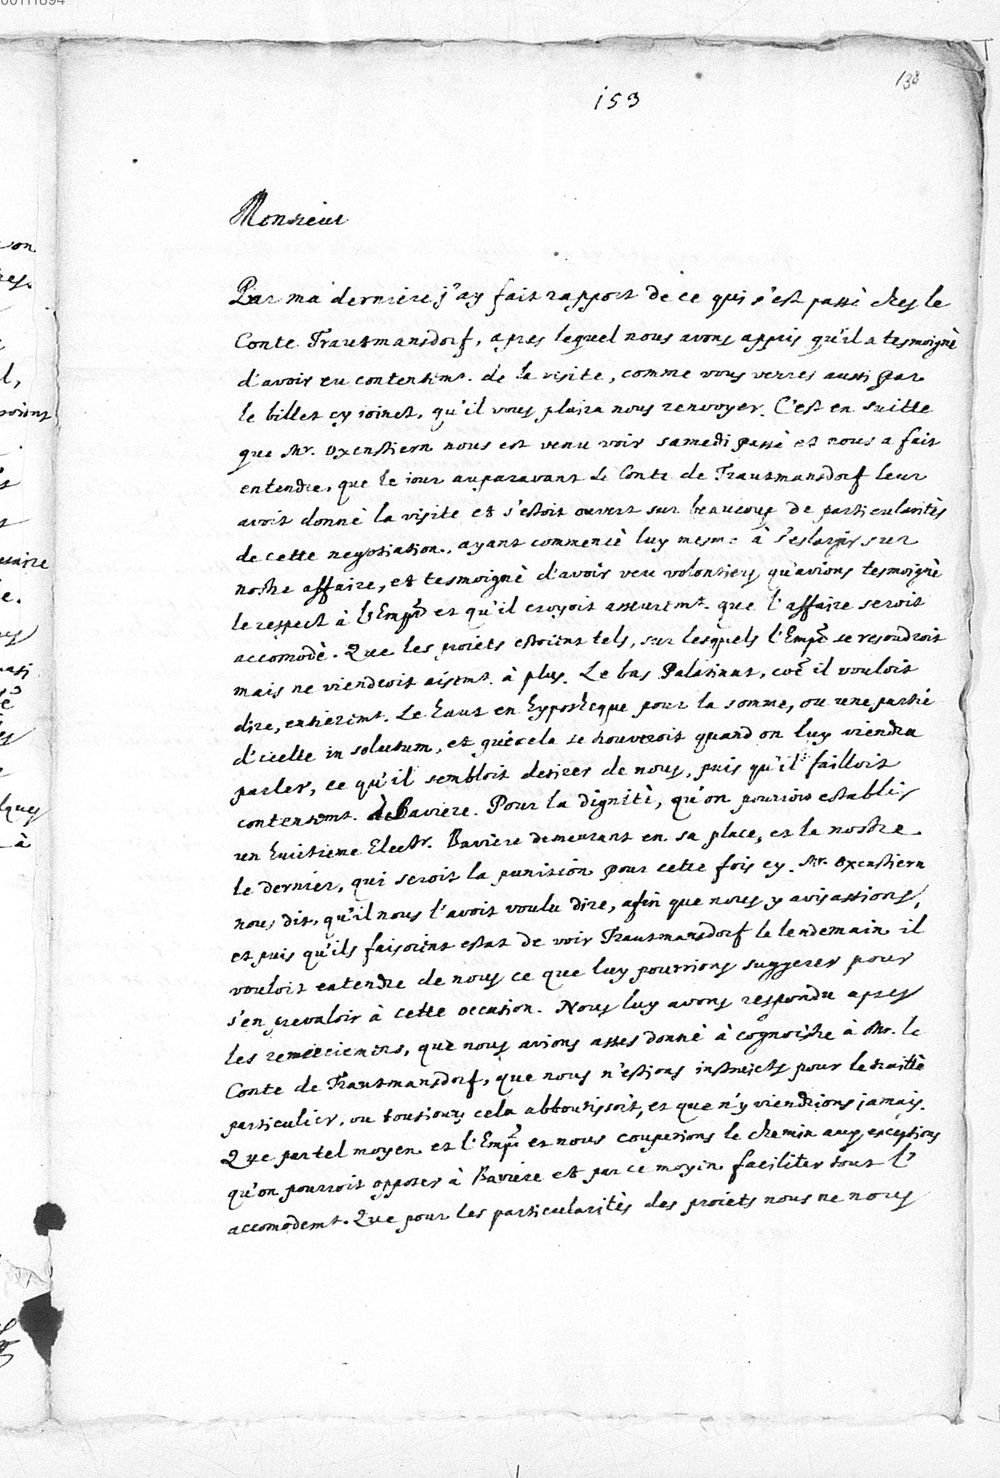 00111894
138
153
Monsieur
Par ma derniere j'ay fait rapport de ce qui s'est passé chez le
Conte Trautmansdorf, apres lequel nous avons appris qu'il a tesmoignè
d'avoir eu contentemt. de la visite, comme vous verres aussi par
le billet cy ioinct, qu'il vous plaira nous renvoyer. C'est en suitte
que Mr. Oxenstiern nous est venu voir samedi passè et nous a fait
entendre, que le iour auparavant le Conte de Trautmansdorf leur
avoit donnè la visite et s'estoit ouvert sur beaucoup de particularitès
de cette negotiation, ayant commencè luy mesme à s'eslargir sur
nostre affaire, et tesmoignè d'avoir veu volontiers qu'avions tesmoignè
le respect à l'Empr et qu'il croyoit asseuremt. que l'affaire seroit
accomodè. Que les proiets estoient tels, sur lesquels l'Empr se resoudroit
mais ne viendroit aisemt. à plus. Le bas Palatinat, coe il vouloit
dire, entieremt. Le haut en hypotheque pour la somme, ou une partie
d'icelle in solutum, et que cela se trouveroit quand on luy viendra
parler, ce qu'il sembloit desirer de nous, puis qu'il failloit
contentemt. de Baviere. Pour la dignitè, qu'on pourroit establir
un huictieme Electr. Baviere demeurant en sa place, et la nostre
le dernier, qui seroit la punition pour cette fois cy. Mr. Oxenstiern
nous dit, qu'il nous l'avoit voulu dire, afin que nous y avisassions,
et puis qu'ils faisoient estat de voir Trautmansdorf le lendemain il
vouloit entendre de nous ce que luy pourrions suggerer pour
s'en prevaloir à cette occasion. Nous luy avons respondu apres
les remerciemens, que nous avions asses donnè à cognoistre à Mr. le
Conte de Trautmansdorf, que nous n'estions instruicts pour le traittè
particulier, ou tousiours cela abboutissoit, et que n'y viendrions jamais.
Que par tel moyen et l'Empr et nous couperions le chemin aux exceptions
qu'on pourroit opposer à Baviere et par ce moyen faciliter tout l'
accomodemt. Que pour les particularitès des proiets nous ne nous